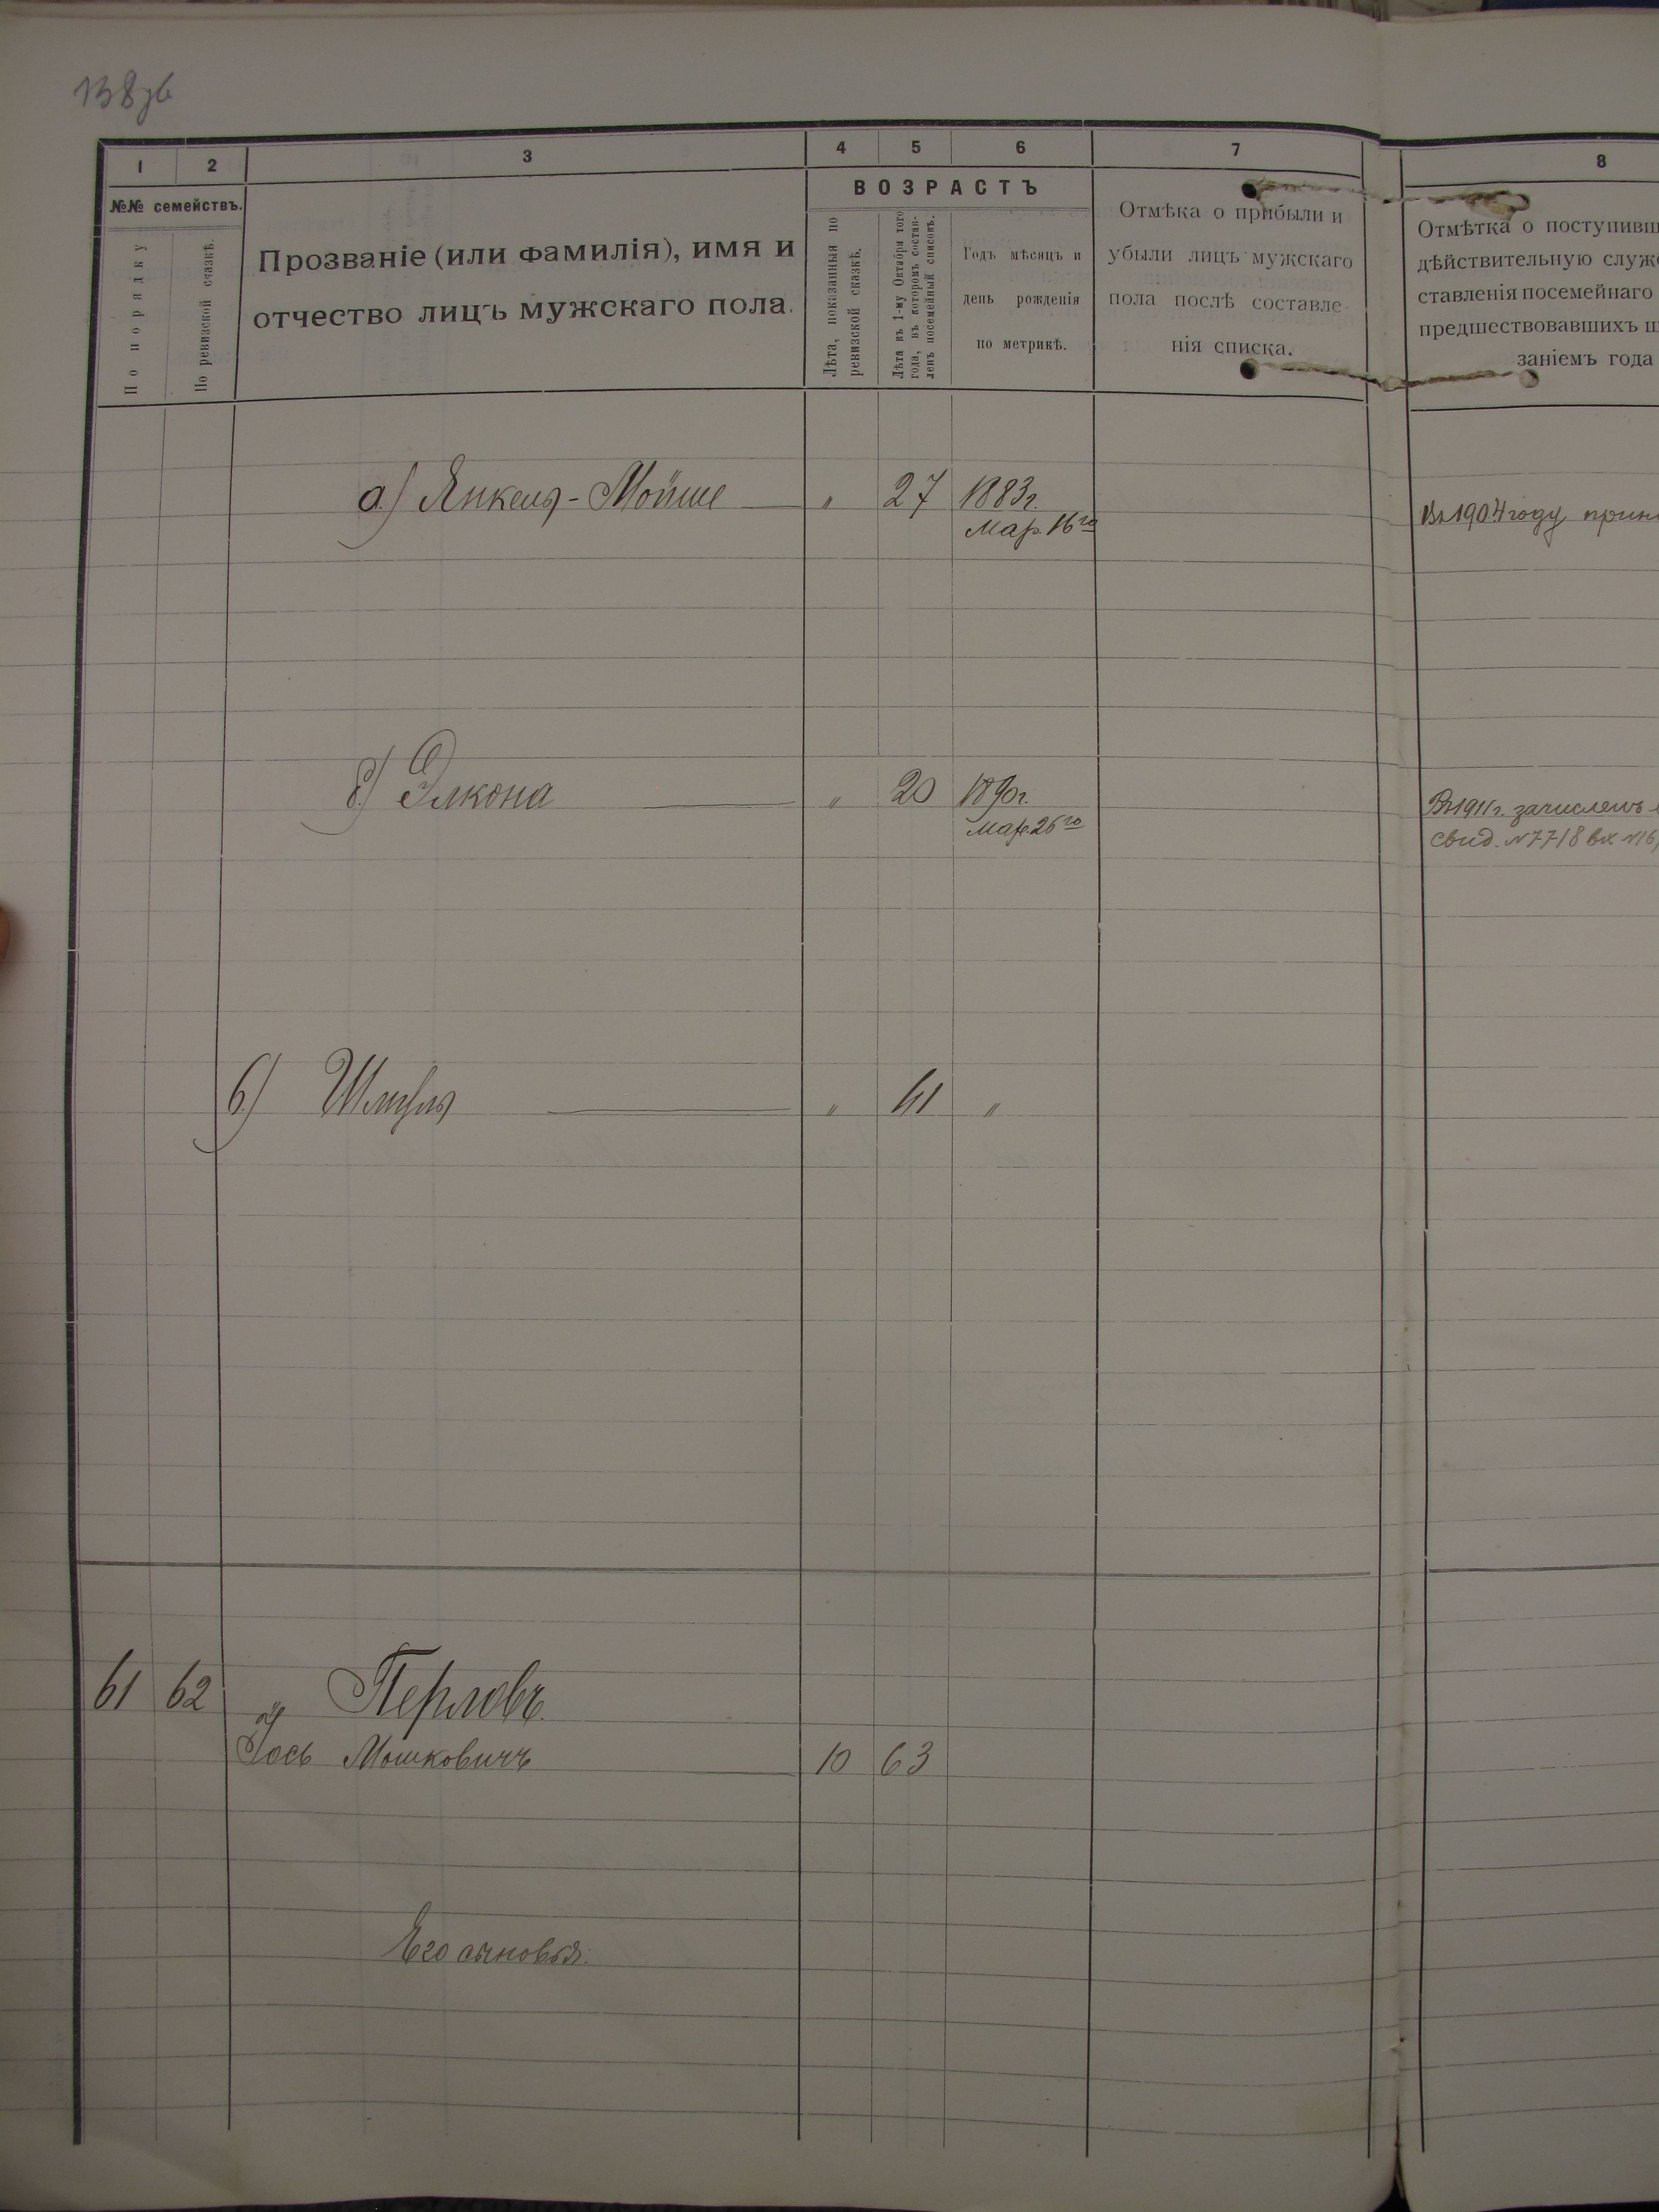 138 зв
1 2 3 4 5 6 7 8
№№ семействъ.
По порядку
По ревизской сказкѣ.
Прозваніе (или фамилія), имя и
отчество лицъ мужскаго пола.
ВОЗРАСТЪ
Лѣта, показанныя по
ревизской сказкѣ.
Лѣта къ 1-му Октября того
года, въ которомъ состав-
ленъ посемейный списокъ.
Годъ мѣсяцъ и
день рожденія
по метрикѣ.
Отмѣка о прибыли и
убыли лицъ мужскаго
пола послѣ составле-
нія списка.
Отмѣтка о поступивш
дѣйствительную служ
ставленія посемейнаго
предшествовавшихъ
заніемъ года
а) Янкель-Мойше „ 27 1883г.
Мар. 16го
Въ 1904 году прин
б) Элкона „ 20 1890г.
Мар. 26го
Въ 1911г. зачисленъ
свид. №7718 вх. №16
б) Шмуль „ 41 „
61 62 Перловъ
Іось Мошковичъ 10 63
Его сыновья: